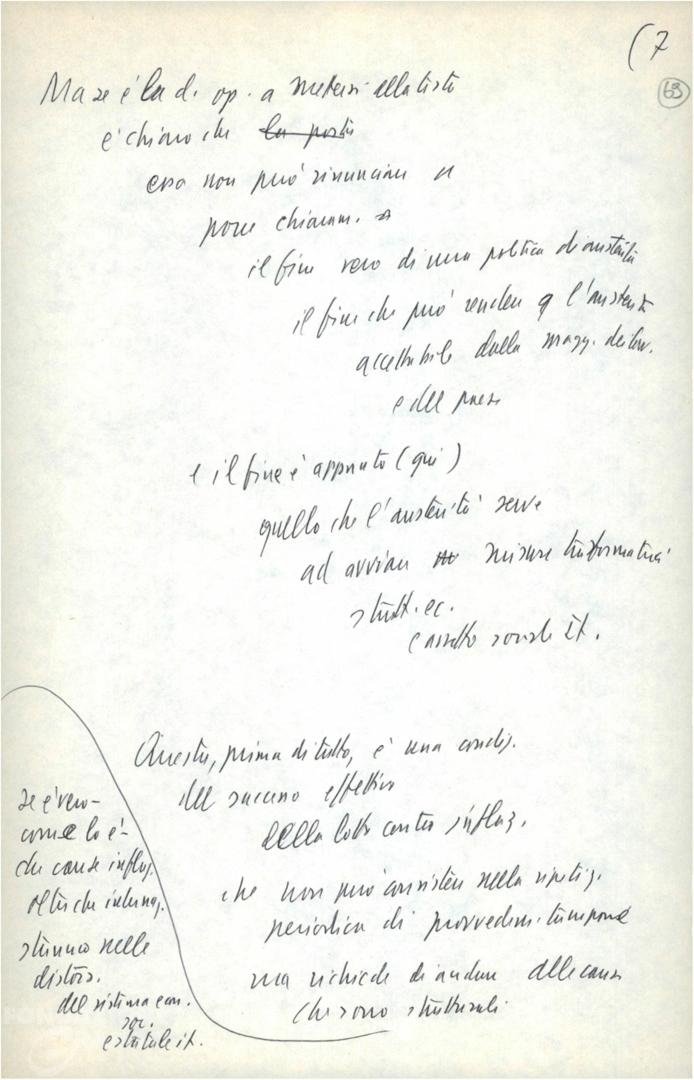 (7
63
Ma se è la cl. op. a mettersi alla testa
è chiaro che la
essa non può rinunciare a
porre chiaram.
il fine vero di una politica di austerità
il fine che può rendere l'austerità
accettabile dalla magg. dei lav.
e del paese
e il fine è appunto (qui)
quello che l'austerità serve
ad avviare misure trasformatrici
strutt. ec.
e assetto sociale it.
Questa, prima di tutto, è una condiz.
del successo effettivo
della lotta contro inflaz.
che non può consistere nella ripetiz.
periodica di provvedim. tampone
ma richiede di andare alle cause
che sono strutturali
se è vero -
come lo è -
che cause inflaz.
oltre che internaz.
stanno nelle
distors.
del sistema econ.
soc.
e statale it.